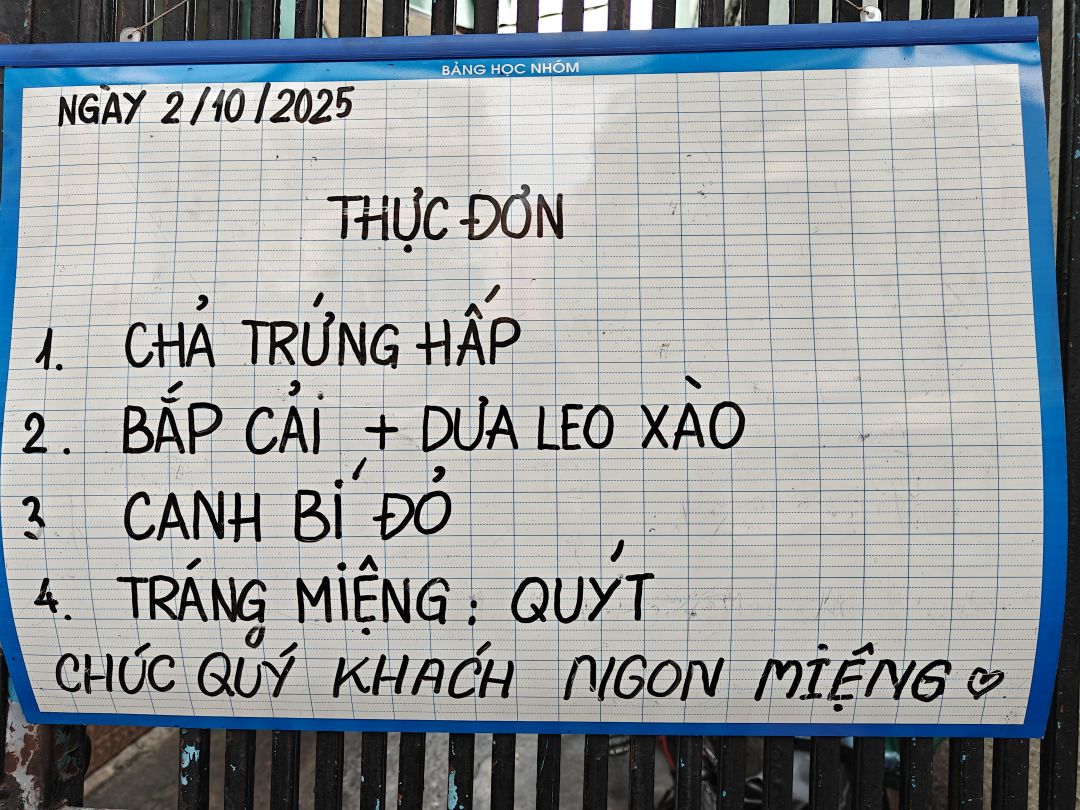 BẢNG HỌC NHÓM
NGÀY 2/10/2025
THỰC ĐƠN
1. CHẢ TRỨNG HẤP
2. BẮP CẢI + DƯA LEO XÀO
3 CANH BÍ ĐỎ
4. TRÁNG MIỆNG: QUÝT
CHÚC QUÝ KHÁCH NGON MIỆNG ♡